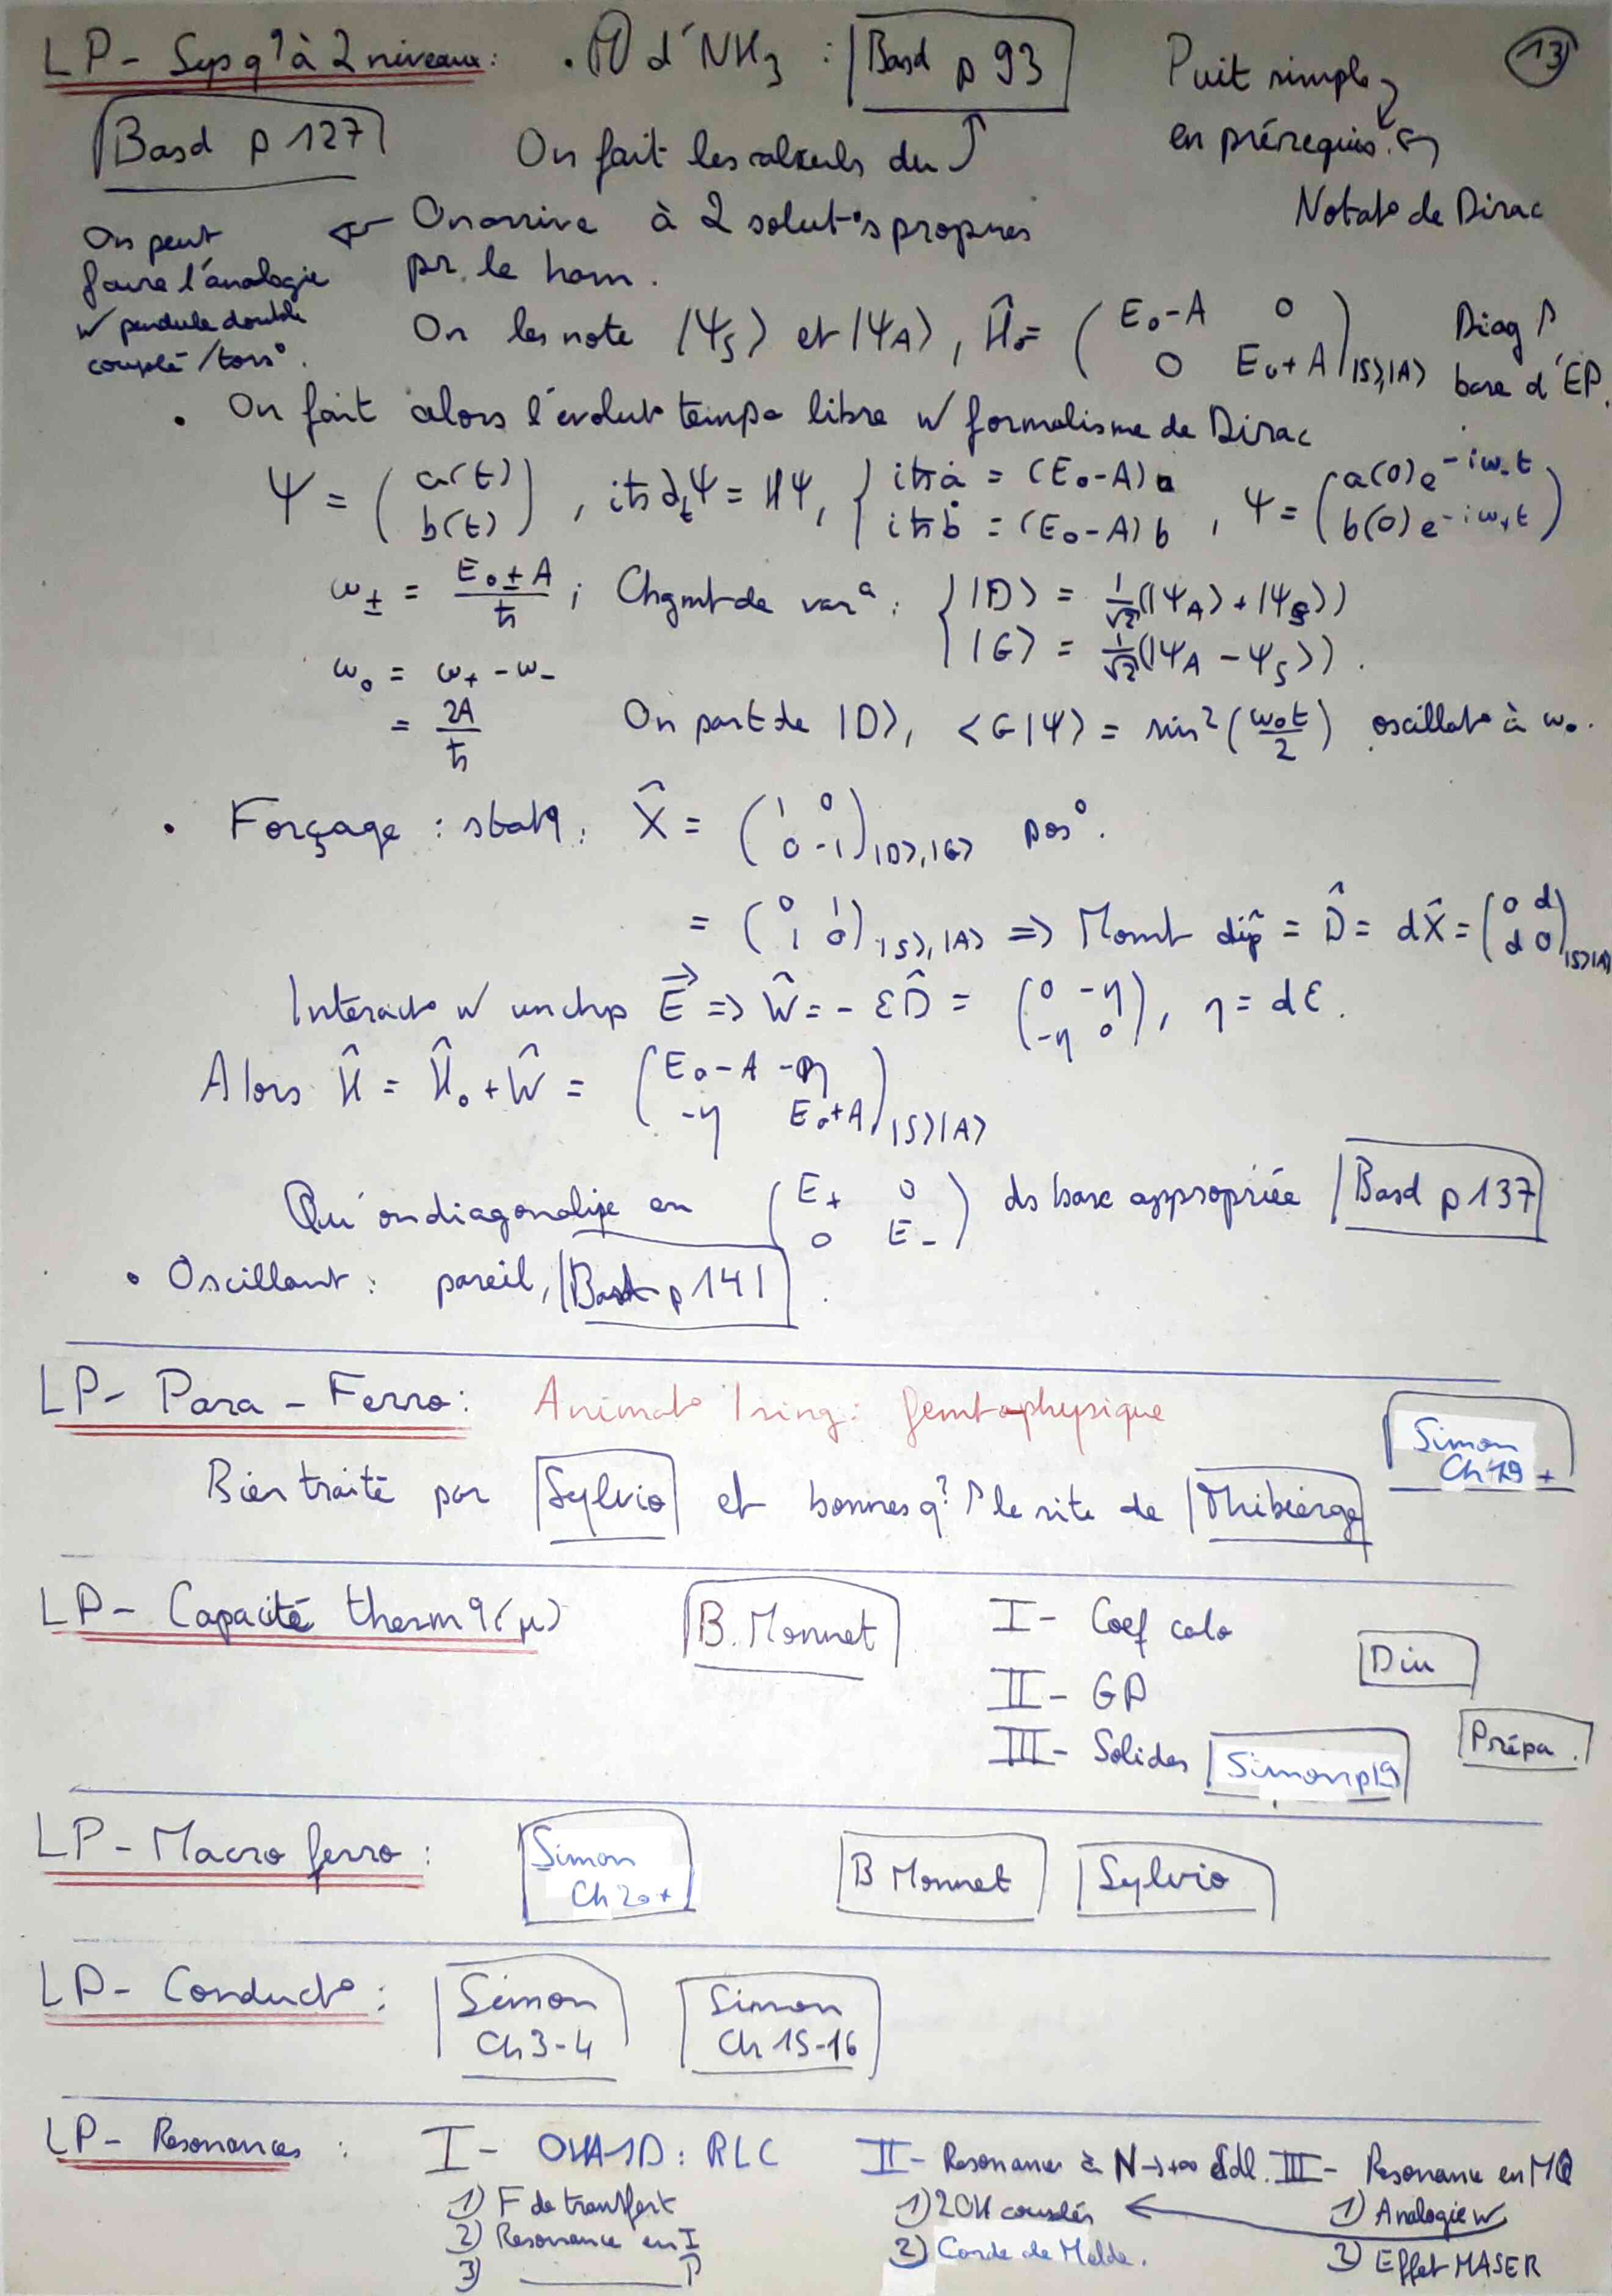 LP- Sys q? à 2 niveaux: . M d'NH3 : Basd p 93 Puit simple 13
Basd p 127 On fait les calculs du en prérequis.
Notat° de Dirac
On peut faire l'analogie w pendule double couplé /tors°.
On arrive à 2 solut°s propres
pr. le ham.
On les note |Ψs⟩ et |ΨA⟩, Ĥ₀= (E₀-A 0 / 0 E₀+A)|S⟩,|A⟩ Diag ↑ base d'EP.
• On fait alors l'évolut° temp° libre w formalisme de Dirac
Ψ = (a(t) / b(t)), iħ∂tΨ = HΨ, { iħȧ = (E₀-A) a / iħḃ = (E₀-A) b , Ψ = (a(0)e^-iω₋t / b(0)e^-iω₊t)
ω± = E₀±A / ħ ; Chgmt de var° : { |D⟩ = 1/√2(|ΨA⟩+|Ψs⟩) / |G⟩ = 1/√2(|ΨA - Ψs⟩).
ω₀ = ω₊ - ω₋
= 2A / ħ On part de |D⟩, <G|Ψ⟩ = sin²(ω₀t/2) oscillat° à ω₀.
• Forçage : statq: X̂ = (1 0 / 0 -1)|D⟩,|G⟩ pos°.
= (0 1 / 1 0)|S⟩,|A⟩ => Momt dip = D̂ = dX̂ = (0 d / d 0)|S⟩|A⟩
Interact° w un chp E⃗ => Ŵ = - ℰD̂ = (0 -η / -η 0), η = dℰ.
Alors Ĥ = Ĥ₀+Ŵ = (E₀-A -η / -η E₀+A)|S⟩|A⟩
Qu'on diagonalise en (E₊ 0 / 0 E₋) ds base appropriée Basd p 137
• Oscillant : pareil, Basd p 141.
LP- Para - Ferro: Animat° Ising: femtophysique Simon Ch 19 +
Bien traité par Sylvio et bonnes q? ↑ le site de Thibierge
LP- Capacité therm q (μ) B. Monnet I- Coef calo
Diu
II- GP
III- Solides Simon p19 Prépa.
LP- Macro ferro: Simon Ch 20 + B Monnet Sylvio
LP- Conduct°: Simon Ch 3-4 Simon Ch 15-16
LP- Resonances : I- OHA1D: RLC II- Resonances à N→+∞ ddl. III- Resonance en MQ
1) F de transfert 1) 2OH couplés ← 1) Analogie w
2) Resonance en I 2) Corde de Melde. 2) Effet MASER
3) ———— P